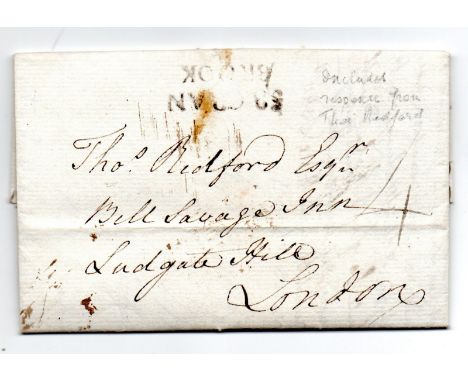 BROOK
includes
response from
Thos Redford
Thos. Redford Esqr.
Bell Savage Inn
4
Ludgate Hill
London